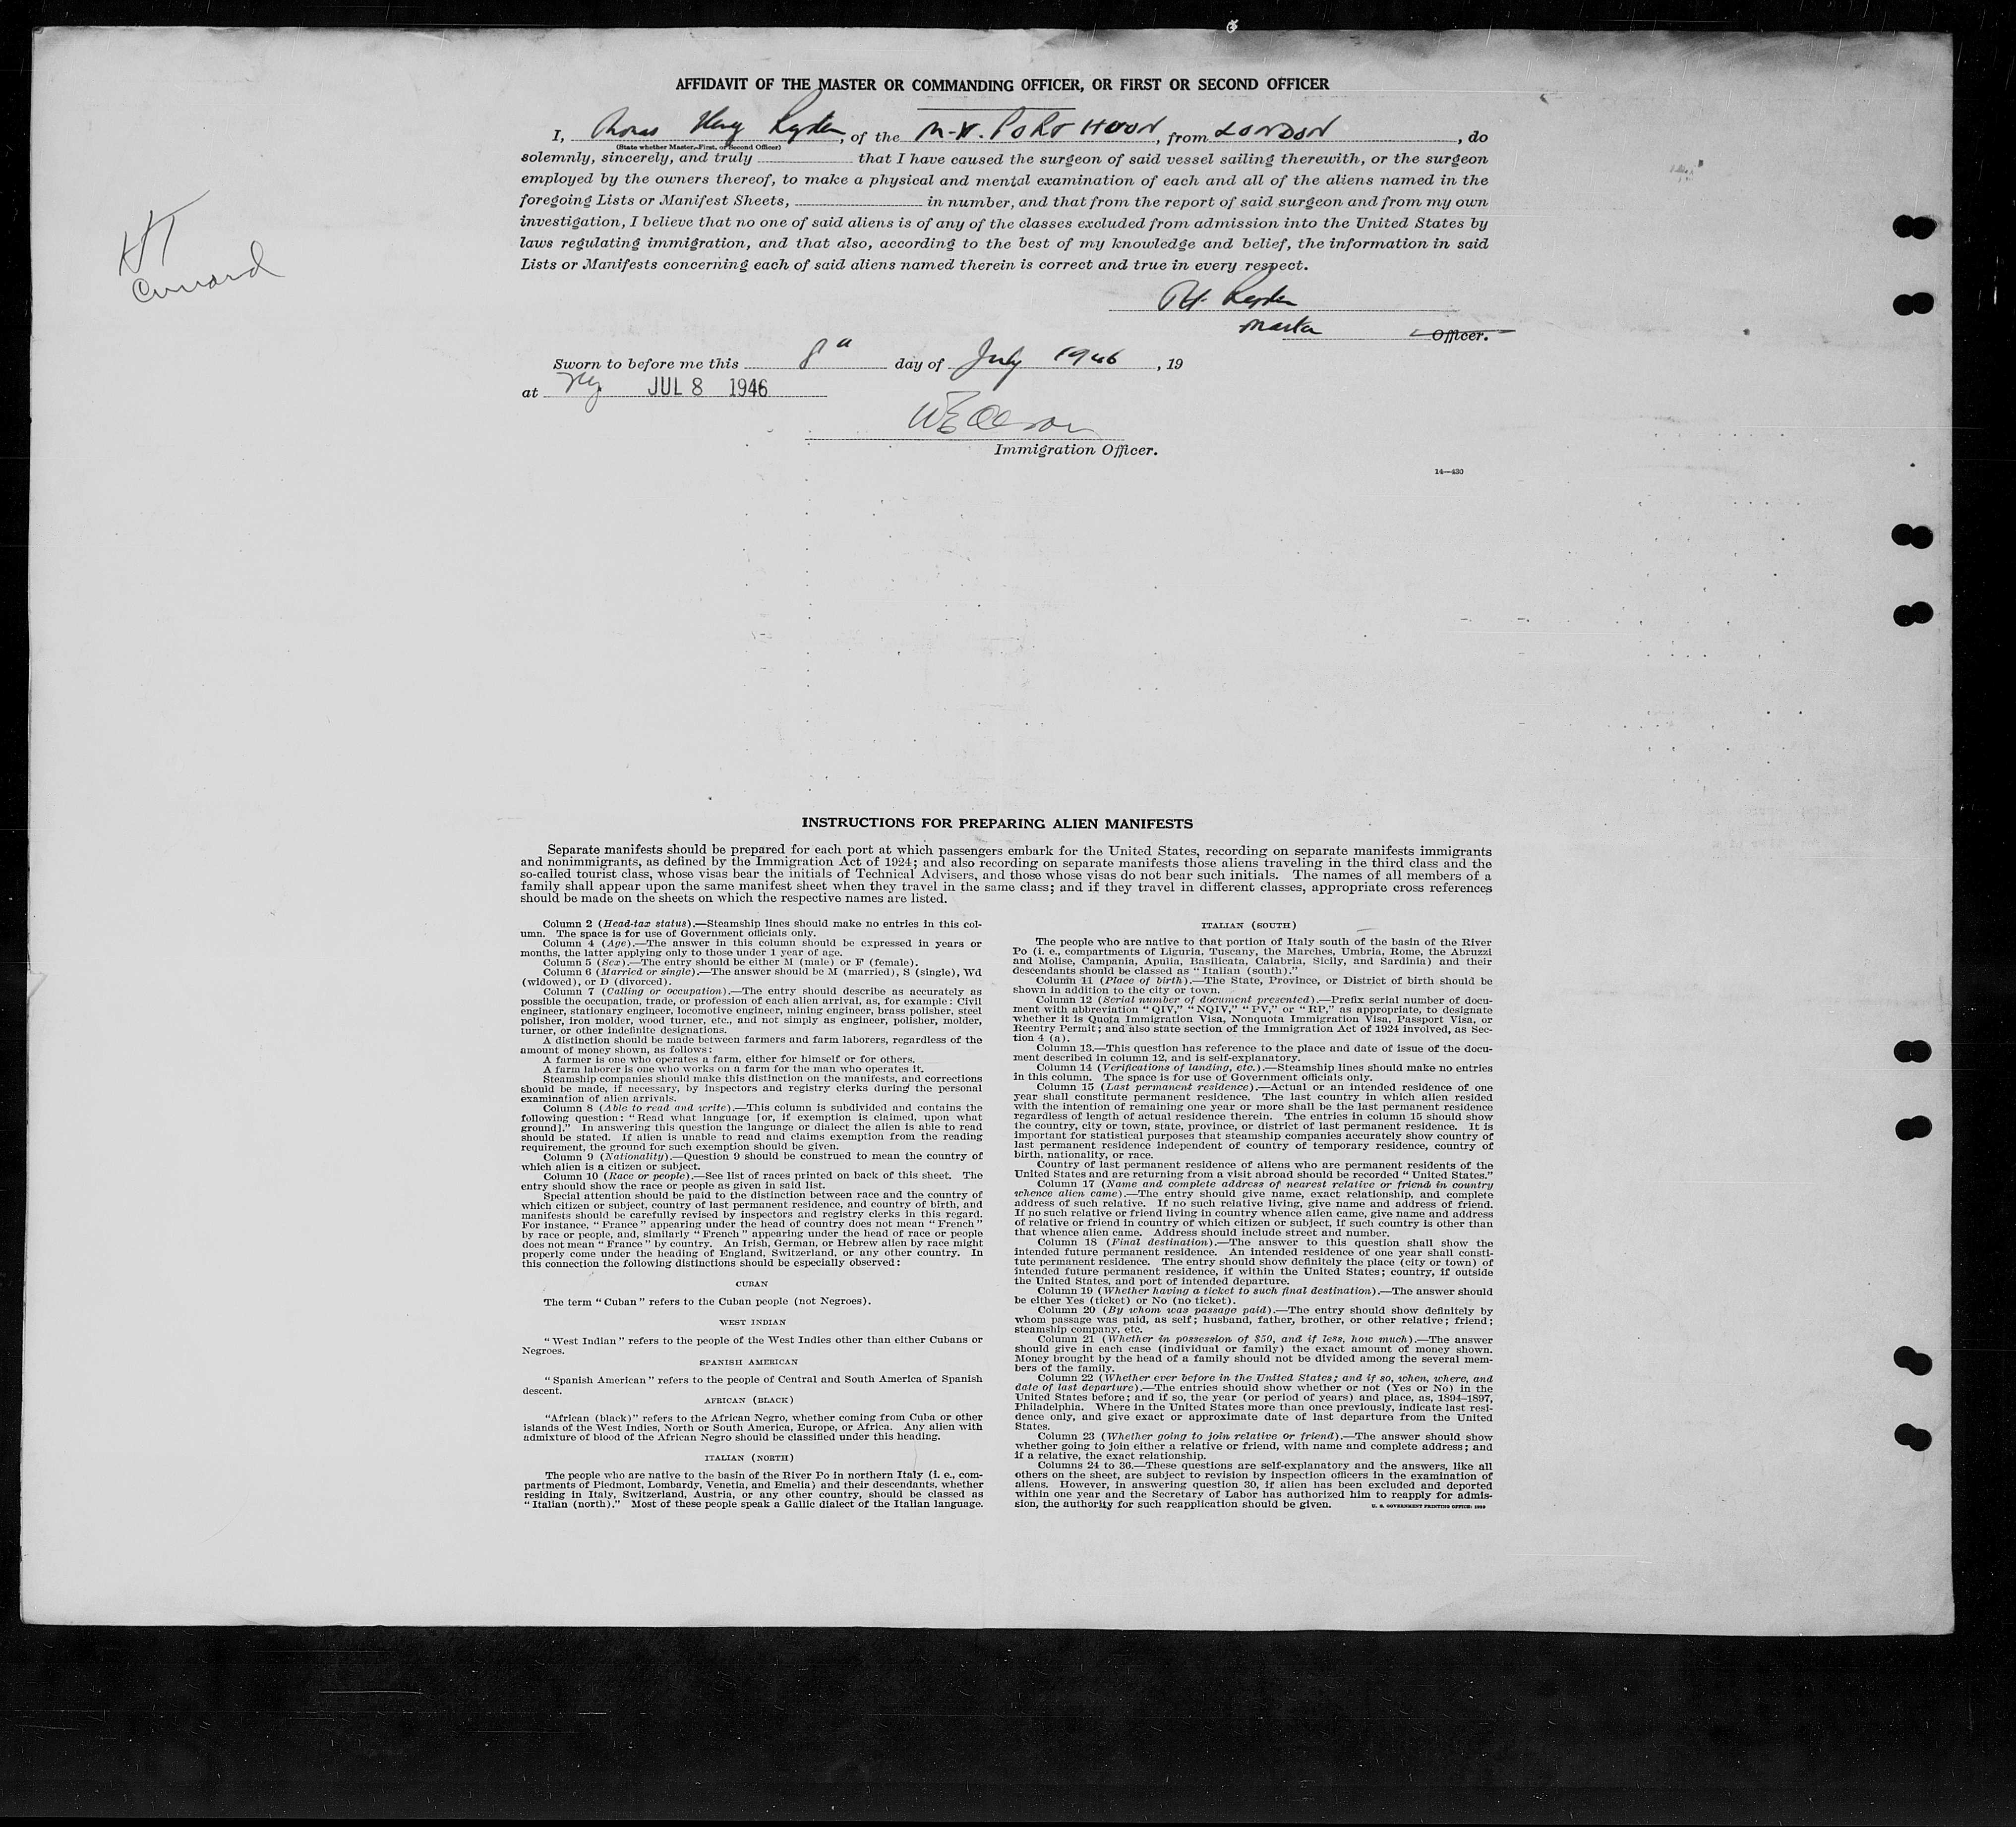 AFFIDAVIT OF THE MASTER OR COMMANDING OFFICER, OR FIRST OR SECOND OFFICER
I, Thomas Henry, of the M.V. PORT HUON, from LONDON, do
(State whether Master, First, or Second Officer)
solemnly, sincerely, and truly that I have caused the surgeon of said vessel sailing therewith, or the surgeon
employed by the owners thereof, to make a physical and mental examination of each and all of the aliens named in the
foregoing Lists or Manifest Sheets, in number, and that from the report of said surgeon and from my own
investigation, I believe that no one of said aliens is of any of the classes excluded from admission into the United States by
laws regulating immigration, and that also, according to the best of my knowledge and belief, the information in said
Lists or Manifests concerning each of said aliens named therein is correct and true in every respect.
Cunard
Master Officer.
Sworn to before me this 8th day of July 1946, 19
at NY JUL 8 1946
Immigration Officer.
14—430
INSTRUCTIONS FOR PREPARING ALIEN MANIFESTS
Separate manifests should be prepared for each port at which passengers embark for the United States, recording on separate manifests immigrants
and nonimmigrants, as defined by the Immigration Act of 1924; and also recording on separate manifests those aliens traveling in the third class and the
so-called tourist class, whose visas bear the initials of Technical Advisers, and those whose visas do not bear such initials. The names of all members of a
family shall appear upon the same manifest sheet when they travel in the same class; and if they travel in different classes, appropriate cross references
should be made on the sheets on which the respective names are listed.
Column 2 (Head-tax status).—Steamship lines should make no entries in this col-
umn. The space is for use of Government officials only.
Column 4 (Age).—The answer in this column should be expressed in years or
months, the latter applying only to those under 1 year of age.
Column 5 (Sex).—The entry should be either M (male) or F (female).
Column 6 (Married or single).—The answer should be M (married), S (single), Wd
(widowed), or D (divorced).
Column 7 (Calling or occupation).—The entry should describe as accurately as
possible the occupation, trade, or profession of each alien arrival, as, for example: Civil
engineer, stationary engineer, locomotive engineer, mining engineer, brass polisher, steel
polisher, iron molder, wood turner, etc., and not simply as engineer, polisher, molder,
turner, or other indefinite designations.
A distinction should be made between farmers and farm laborers, regardless of the
amount of money shown, as follows:
A farmer is one who operates a farm, either for himself or for others.
A farm laborer is one who works on a farm for the man who operates it.
Steamship companies should make this distinction on the manifests, and corrections
should be made, if necessary, by inspectors and registry clerks during the personal
examination of alien arrivals.
Column 8 (Able to read and write).—This column is subdivided and contains the
following question: "Read what language [or, if exemption is claimed, upon what
ground]." In answering this question the language or dialect the alien is able to read
should be stated. If alien is unable to read and claims exemption from the reading
requirement, the ground for such exemption should be given.
Column 9 (Nationality).—Question 9 should be construed to mean the country of
which alien is a citizen or subject.
Column 10 (Race or people).—See list of races printed on back of this sheet. The
entry should show the race or people as given in said list.
Special attention should be paid to the distinction between race and the country of
which citizen or subject, country of last permanent residence, and country of birth, and
manifests should be carefully revised by inspectors and registry clerks in this regard.
For instance, "France" appearing under the head of country does not mean "French"
by race or people, and, similarly "French" appearing under the head of race or people
does not mean "France" by country. An Irish, German, or Hebrew alien by race might
properly come under the heading of England, Switzerland, or any other country. In
this connection the following distinctions should be especially observed:
CUBAN
The term "Cuban" refers to the Cuban people (not Negroes).
WEST INDIAN
"West Indian" refers to the people of the West Indies other than either Cubans or
Negroes.
SPANISH AMERICAN
"Spanish American" refers to the people of Central and South America of Spanish
descent.
AFRICAN (BLACK)
"African (black)" refers to the African Negro, whether coming from Cuba or other
islands of the West Indies, North or South America, Europe, or Africa. Any alien with
admixture of blood of the African Negro should be classified under this heading.
ITALIAN (NORTH)
The people who are native to the basin of the River Po in northern Italy (i. e., com-
partments of Piedmont, Lombardy, Venetia, and Emelia) and their descendants, whether
residing in Italy, Switzerland, Austria, or any other country, should be classed as
"Italian (north)." Most of these people speak a Gallic dialect of the Italian language.
ITALIAN (SOUTH)
The people who are native to that portion of Italy south of the basin of the River
Po (i. e., compartments of Liguria, Tuscany, the Marches, Umbria, Rome, the Abruzzi
and Molise, Campania, Apulia, Basilicata, Calabria, Sicily, and Sardinia) and their
descendants should be classed as "Italian (south)."
Column 11 (Place of birth).—The State, Province, or District of birth should be
shown in addition to the city or town.
Column 12 (Serial number of document presented).—Prefix serial number of docu-
ment with abbreviation "QIV," "NQIV," "PV," or "RP," as appropriate, to designate
whether it is Quota Immigration Visa, Nonquota Immigration Visa, Passport Visa, or
Reentry Permit; and also state section of the Immigration Act of 1924 involved, as Sec-
tion 4 (a).
Column 13.—This question has reference to the place and date of issue of the docu-
ment described in column 12, and is self-explanatory.
Column 14 (Verifications of landing, etc.).—Steamship lines should make no entries
in this column. The space is for use of Government officials only.
Column 15 (Last permanent residence).—Actual or an intended residence of one
year shall constitute permanent residence. The last country in which alien resided
with the intention of remaining one year or more shall be the last permanent residence
regardless of length of actual residence therein. The entries in column 15 should show
the country, city or town, state, province, or district of last permanent residence. It is
important for statistical purposes that steamship companies accurately show country of
last permanent residence independent of country of temporary residence, country of
birth, nationality, or race.
Country of last permanent residence of aliens who are permanent residents of the
United States and are returning from a visit abroad should be recorded "United States."
Column 17 (Name and complete address of nearest relative or friend in country
whence alien came).—The entry should give name, exact relationship, and complete
address of such relative. If no such relative living, give name and address of friend.
If no such relative or friend living in country whence alien came, give name and address
of relative or friend in country of which citizen or subject, if such country is other than
that whence alien came. Address should include street and number.
Column 18 (Final destination).—The answer to this question shall show the
intended future permanent residence. An intended residence of one year shall consti-
tute permanent residence. The entry should show definitely the place (city or town) of
intended future permanent residence, if within the United States; country, if outside
the United States, and port of intended departure.
Column 19 (Whether having a ticket to such final destination).—The answer should
be either Yes (ticket) or No (no ticket).
Column 20 (By whom was passage paid).—The entry should show definitely by
whom passage was paid, as self; husband, father, brother, or other relative; friend;
steamship company, etc.
Column 21 (Whether in possession of $50, and if less, how much).—The answer
should give in each case (individual or family) the exact amount of money shown.
Money brought by the head of a family should not be divided among the several mem-
bers of the family.
Column 22 (Whether ever before in the United States; and if so, when, where, and
date of last departure).—The entries should show whether or not (Yes or No) in the
United States before; and if so, the year (or period of years) and place, as, 1894–1897,
Philadelphia. Where in the United States more than once previously, indicate last resi-
dence only, and give exact or approximate date of last departure from the United
States.
Column 23 (Whether going to join relative or friend).—The answer should show
whether going to join either a relative or friend, with name and complete address; and
if a relative, the exact relationship.
Columns 24 to 36.—These questions are self-explanatory and the answers, like all
others on the sheet, are subject to revision by inspection officers in the examination of
aliens. However, in answering question 30, if alien has been excluded and deported
within one year and the Secretary of Labor has authorized him to reapply for admis-
sion, the authority for such reapplication should be given.